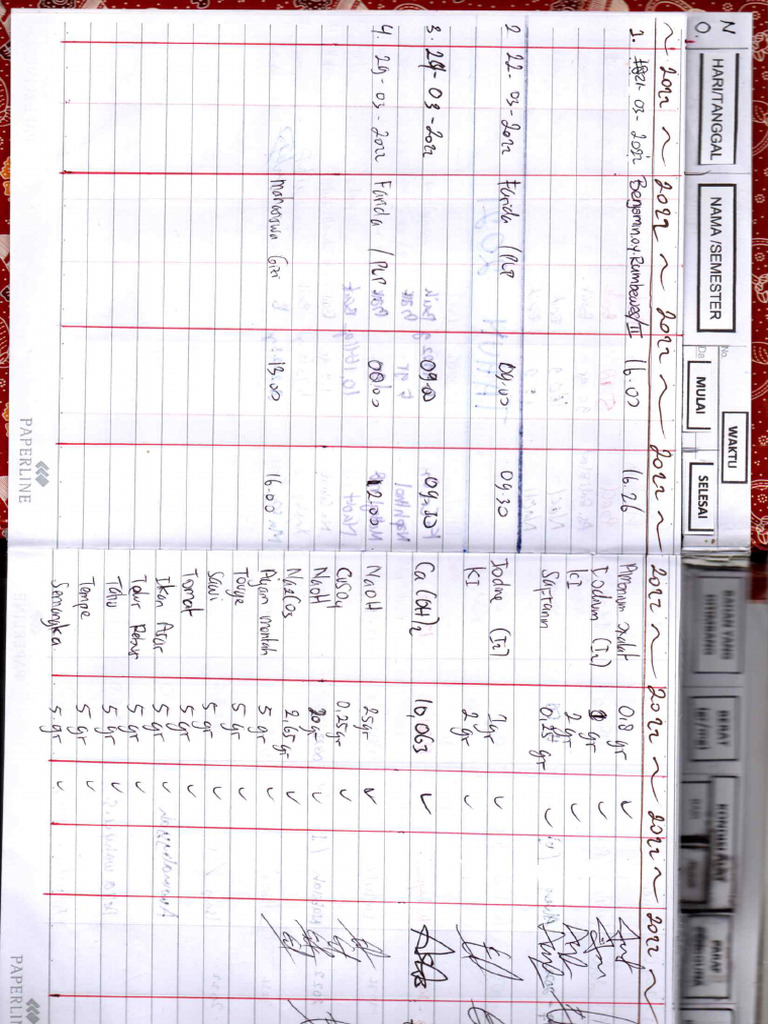 NO.
HARI/TANGGAL
NAMA /SEMESTER
WAKTU
MULAI
SELESAI
BAHAN YANG
DITIMBANG
BERAT
KONDISI ALAT
~ 2022 ~ 2022 ~ 2022 ~ 2022 ~ 2022 ~ 2022 ~ 2022 ~ 2022 ~
1. 21-03-2022 Benjamin.o.y.Rumbewas/II 16.00 16.26 Amonium oxalat 0.8 gr ✓
Iodium (I2) 1 gr ✓
KI 2 gr ✓
Saftanin 0,25 gr ✓
2. 22-03-2022 Farida /PLP 09.00 09.30 Iodine (I2) 1 gr
KI 2 gr ✓
3. 24-03-2022 09.00 09.30 Ca(OH)2 10,063 ✓
4. 29-03-2022 Farida /PLP 12.00 NaOH 25gr ✓
CuSO4 0.25gr ✓
NaOH 20gr ✓
Na2CO3 2,65 gr ✓
mahasiswa Gizi 13.00 16.00 Ayam mentah 5 gr ✓
Touge 5 gr ✓
Sawi 5 gr ✓
Tomat 5 gr ✓
Ikan Asar 5 gr ✓
Telur Rebus 5 gr ✓
Tahu 5 gr ✓
Tempe 5 gr ✓
Semangka 5 gr ✓
PAPERLINE
PAPERLINE